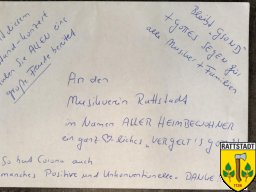 diesem
konzert
Sie ALLEN eine
große Freude bereitet
Bleibt "GSUND"
+ GOTTES SEGEN für
alle Musiker +
Familien
An den
Musikverein Rattstadt
im Namen ALLER HEIMBEWOHNER
ein ganz ♡liches "VERGELT'S
So hat Corona auch
manches Positive und Unkonventionelle. DANKE
RATTSTADT